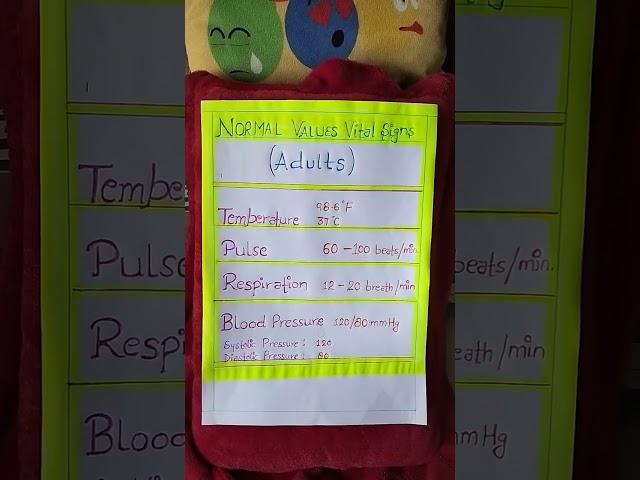 NORMAL VALUES Vital Signs
(Adults)
Temperature 98.6°F
37°C
Pulse 60 – 100 beats/min.
Respiration 12 – 20 breath/min
Blood Pressure 120/80 mmHg
Systolic Pressure : 120
Diastolic Pressure : 80
Tempe
Pulse
beats/min.
Respi
eath/min
Blood
mHg